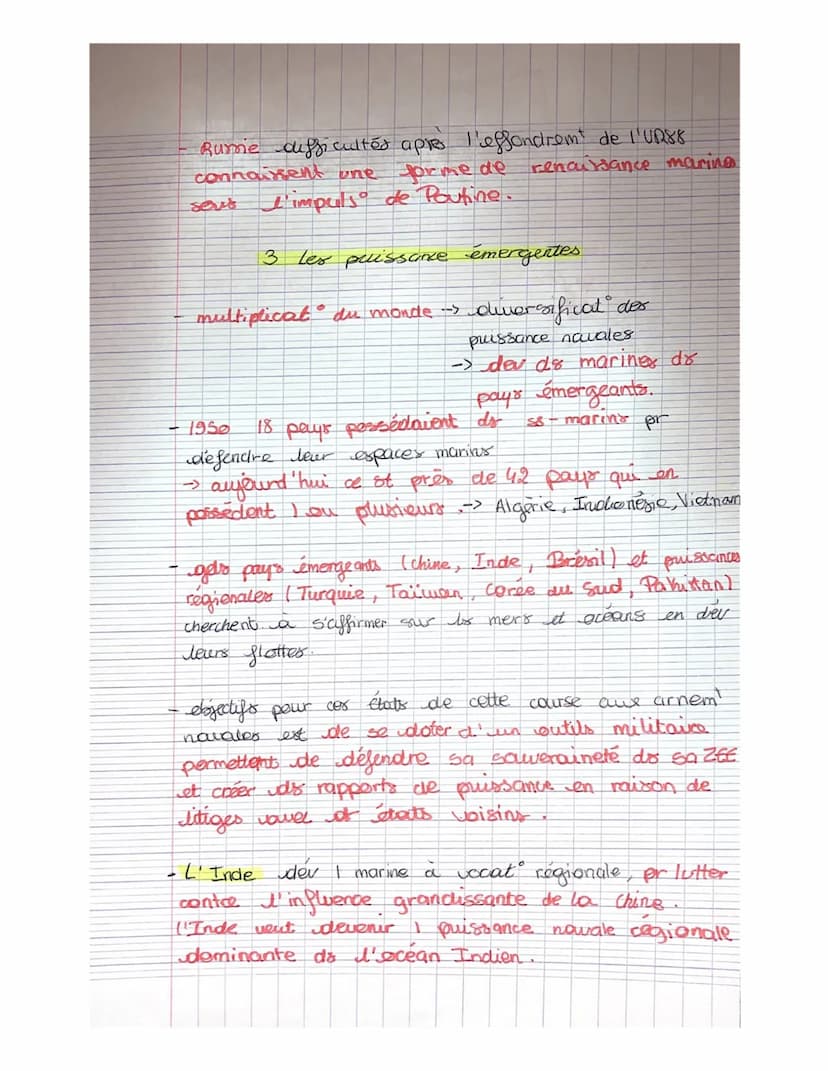 - Russie difficultés après l'effondremt de l'URSS
connaissent une forme de renaissance marine
sous l'impuls° de Poutine.
3 les puissance émergentes
- multiplicat° du monde -> diversificat° des
puissance navales
-> dev ds marines ds
pays émergeants.
- 1950 18 pays possédaient ds ss-marins pr
défendre leur espaces marins
-> aujourd'hui ce st près de 42 pays qui en
possèdent 1 ou plusieurs -> Algérie, Indonésie, Vietnam
- gds pays émergeants (Chine, Inde, Brésil) et puissances
régionales (Turquie, Taïwan, Corée du Sud, Pakistan)
cherchent à s'affirmer sur les mers et océans en dév
leurs flottes.
- objectifs pour ces États de cette course aux armemt
navales est de se doter d'un outils militaire
permettent de défendre sa souveraineté ds sa ZEE
et créer ds rapports de puissance en raison de
litiges états voisins.
- L'Inde dév 1 marine à vocat° régionale, pr lutter
contre l'influence grandissante de la Chine.
l'Inde veut devenir 1 puissance navale régionale
dominante ds l'océan Indien.